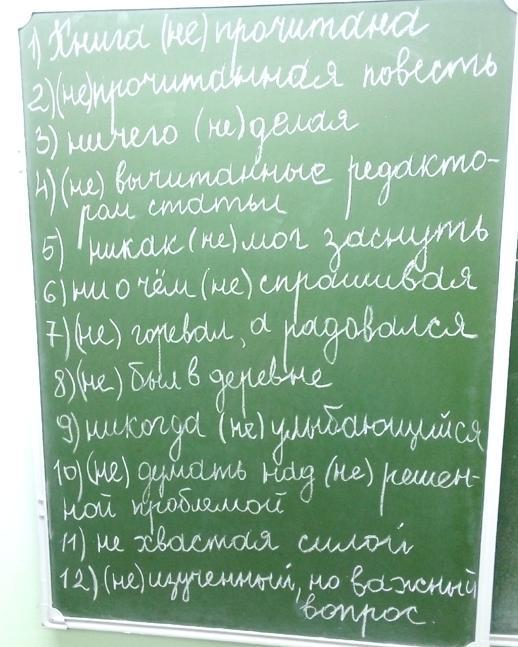 1) Книга (не) прочитана
2) (не)прочитанная повесть
3) ничего (не) делая
4) (не) вычитанные редакто-
ром статьи
5) никак (не) мог заснуть
6) ни о чём (не) спрашивая
7) (не) горевал, а радовался
8) (не) был в деревне
9) никогда (не) улыбающийся
10) (не) думать над (не) решен-
ной проблемой
11) не хвастая силой
12) (не) изученный, но важный
вопрос.